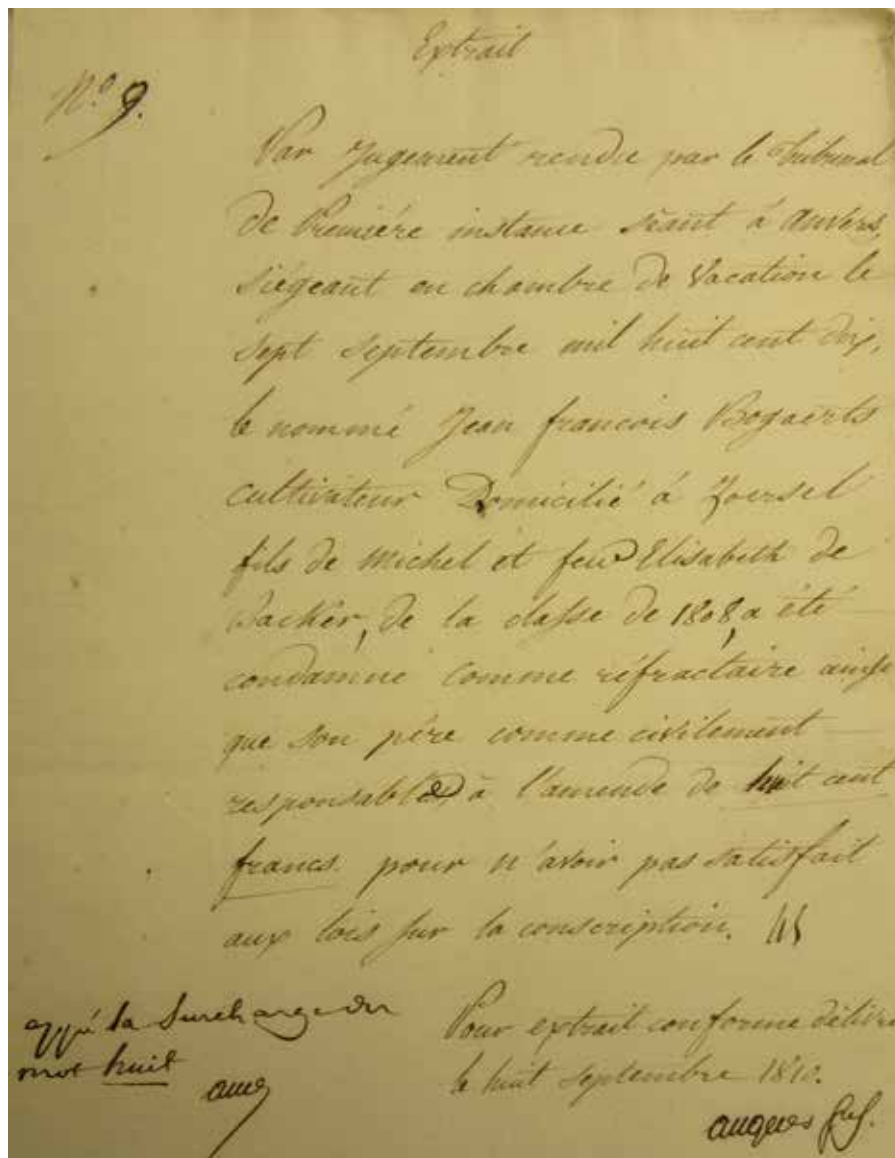 Extrait
N.o 9.
Par Jugement rendu par le Tribunal
de Premiére instance séant à anvers,
siégeant en chambre de Vacation le
sept septembre mil huit cent dix,
le nommé Jean francois Bogaerts
cultivateur Domicilié à Zoersel
fils de Michel et feu Elisabeth de
Backer, de la classe de 1808, a été
condamné comme réfractaire ainsi
que son pére comme civilement
responsable à l'amende de huit cent
francs. pour n'avoir pas satisfait
aux lois sur la conscription.
appé la Surcharge du
mot huit
Pour extrait conforme délivré
le huit septembre 1810.